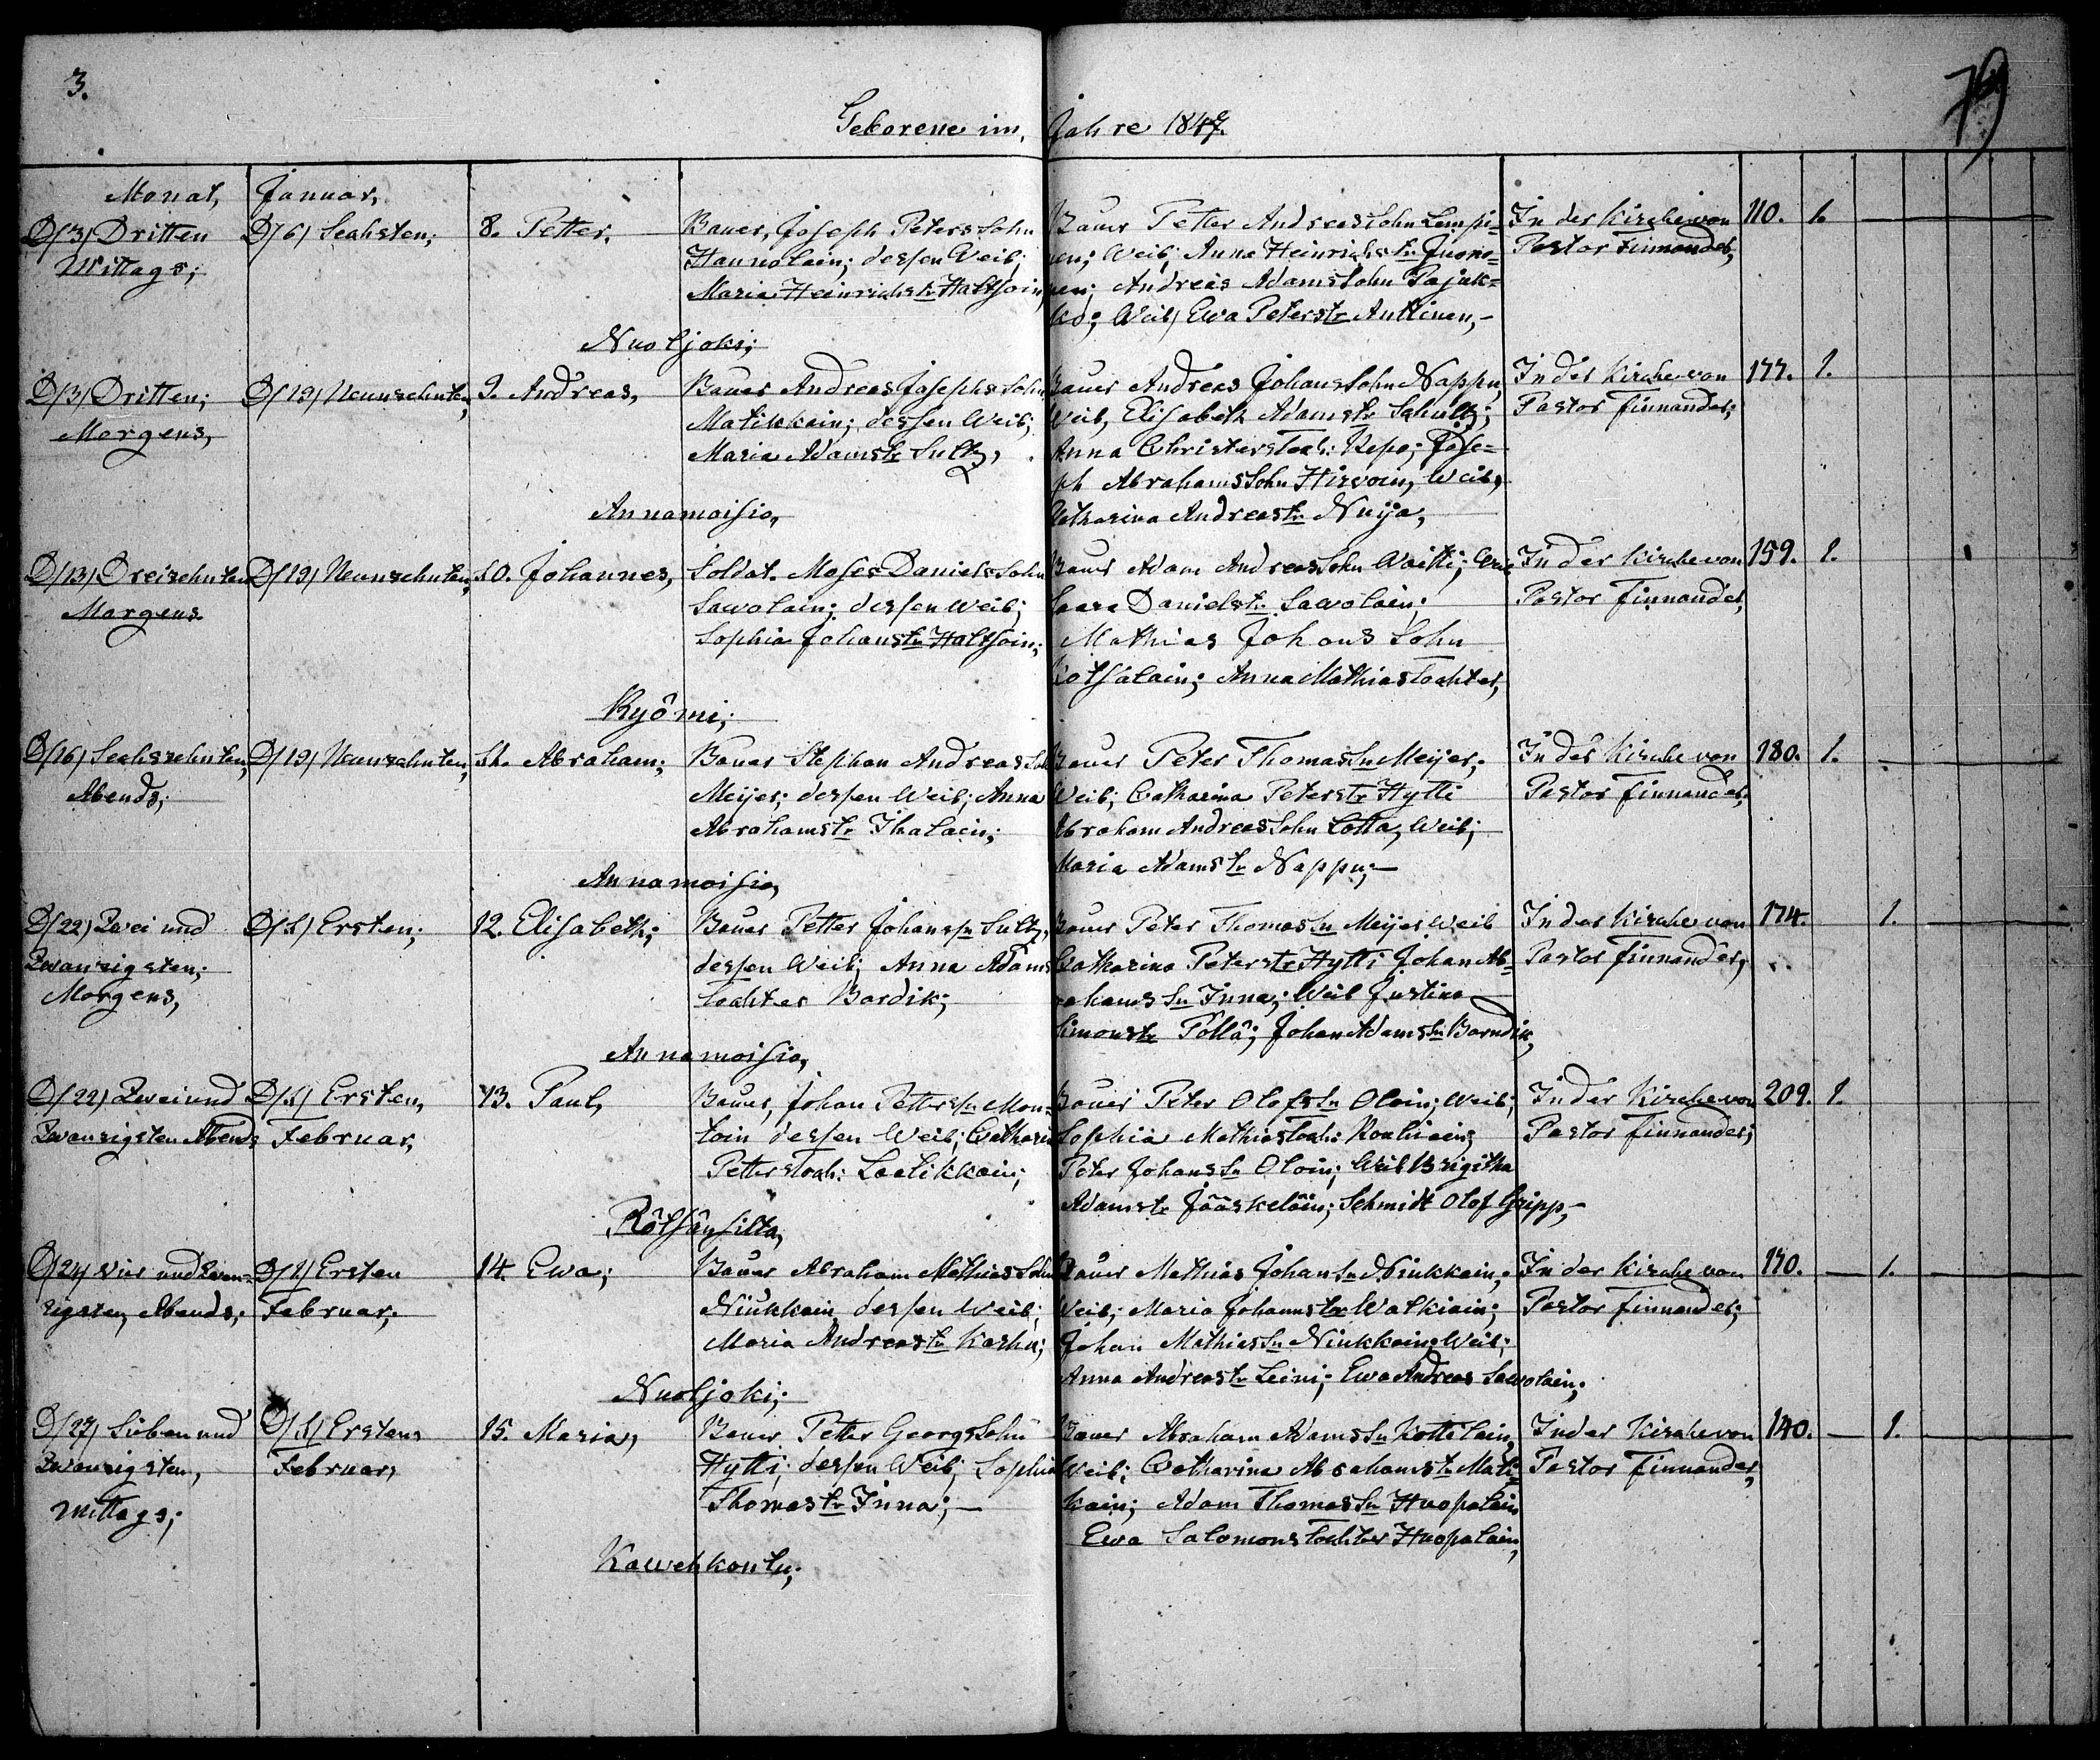 3.
79
Geborene im Jahre 1847.
Monat, Januar,
D/3/ Dritten
Mittags;
D/6/ Sechsten;
8. Petter.
Bauer, Joseph Peters Sohn
Hannolain; dessen Weib;
Maria Heinrichs tr Haltsoin,
Bauer Petter Andreas Sohn Lempi-
nen; Weib; Anna Heinrichs tr Juono-
nen; Andreas Adams Sohn Pajuk-
ko; Weib, Ewa Peters tr Anttinen,-
In der Kirche von
Pastor Finnander,
110. 1.
Nuoljoki;
D/3/ Dritten;
Morgens,
D/19/ Neunzehnten,
9. Andreas,
Bauer Andreas Josephs Sohn
Matikkain; dessen Weib;
Maria Adams tr Sultz,
Bauer Andreas Johans Sohn Nappu,
Weib, Elisabeth Adams tr Schultz;
Anna Christers Toch: Repo; Jose-
ph Abrahams Sohn Hirvoin, Weib,
Katharina Andreas tr Nuija,
In der Kirche von
Pastor Finnander;
177. 1.
Annamoisio,
D/13/ Dreizehnten
Morgens.
D/19/ Neunzehnten,
10. Johannes,
Soldat. Moses Daniels Sohn
Sawolain; dessen Weib;
Sophia Johans tr Haltsoin;
Bauer Adam Andreas Sohn Waitti; Weib
Saara Daniels tr Sawolain;
Mathias Johans Sohn
Rotsalain; Anna Mathias Tochter,
In der Kirche von
Pastor Finnander,
159. 1.
Ryömi;
D/16/ Sechszehnten,
Abends;
D/19/ Neunzehnten,
11. Abraham;
Bauer Stephan Andreas Sohn
Meijer; dessen Weib; Anna
Abrahams tr Ihalain;
Bauer Peter Thomas Sn Meijer;
Weib; Catharina Peters tr Hytti
Abraham Andreas Sohn Lotta, Weib;
Maria Adams tr Nappu;-
In der Kirche von
Pastor Finnander,
180. 1.
Annamoisio,
D/22/ Zwei und
Zwanzigsten;
Morgens,
D/1/ Ersten;
12. Elisabeth;
Bauer Petter Johans sn Sultz,
dessen Weib; Anna Adams
Tochter Bardik;
Bauer Peter Thomas Sn Meijer Weib
Catharina Peters tr Hytti Johan Ab-
rahams Sn Inna; Weib Justina
Simons tr Pöllä; Johan Adams Sn Borndik,
In der Kirche von
Pastor Finnander,
174. 1.
Annamoisio,
D/22/ Zwei und
Zwanzigsten Abends
D/1/ Ersten,
Februar,
13. Paul,
Bauer, Johan Petters sn Mon-
toin dessen Weib; Catharin
Petters Toch: Laatikkain;
Bauer Peter Olofs Sn Oloin; Weib;
Sophia Mathias Toch: Rouhiain;
Peter Johans Sn Oloin; Weib Brigitha
Adams tr Jääskeläin; Schmidt Olof Gripp,-
In der Kirche von
Pastor Finnander;
209. 1.
Rötsänsilta,
D/24/ Vier und Zwan-
zigsten, Abends;
D/1/ Ersten
Februar;
14. Ewa;
Bauer Abraham Mathias Sohn
Niukkain dessen Weib;
Maria Andreas tr Karhu;
Bauer Mathias Johan Sn Niukkain;
Weib; Maria Johanns tr Walkiain;
Johan Mathias Sn Niukkain; Weib;
Anna Andreas tr Leini; Ewa Andreas Sawolain;
In der Kirche von
Pastor Finnander;
170. 1.
Nuoljoki;
D/27/ Sieben und
Zwanzigsten,
Mittags;
D/1/ Ersten
Februar,
15. Maria,
Bauer Petter Georgs Sohn
Hytti; dessen Weib; Sophia
Thomas tr Inna;-
Bauer Abraham Adams Sn Kottilain,
Weib; Catharina Abrahams tr Mati-
kain; Adam Thomas Sn Huopalain
Ewa Salomons Tochter Huopalain,
In der Kirche von
Pastor Finnander,
140. 1.
Kawehkontu;